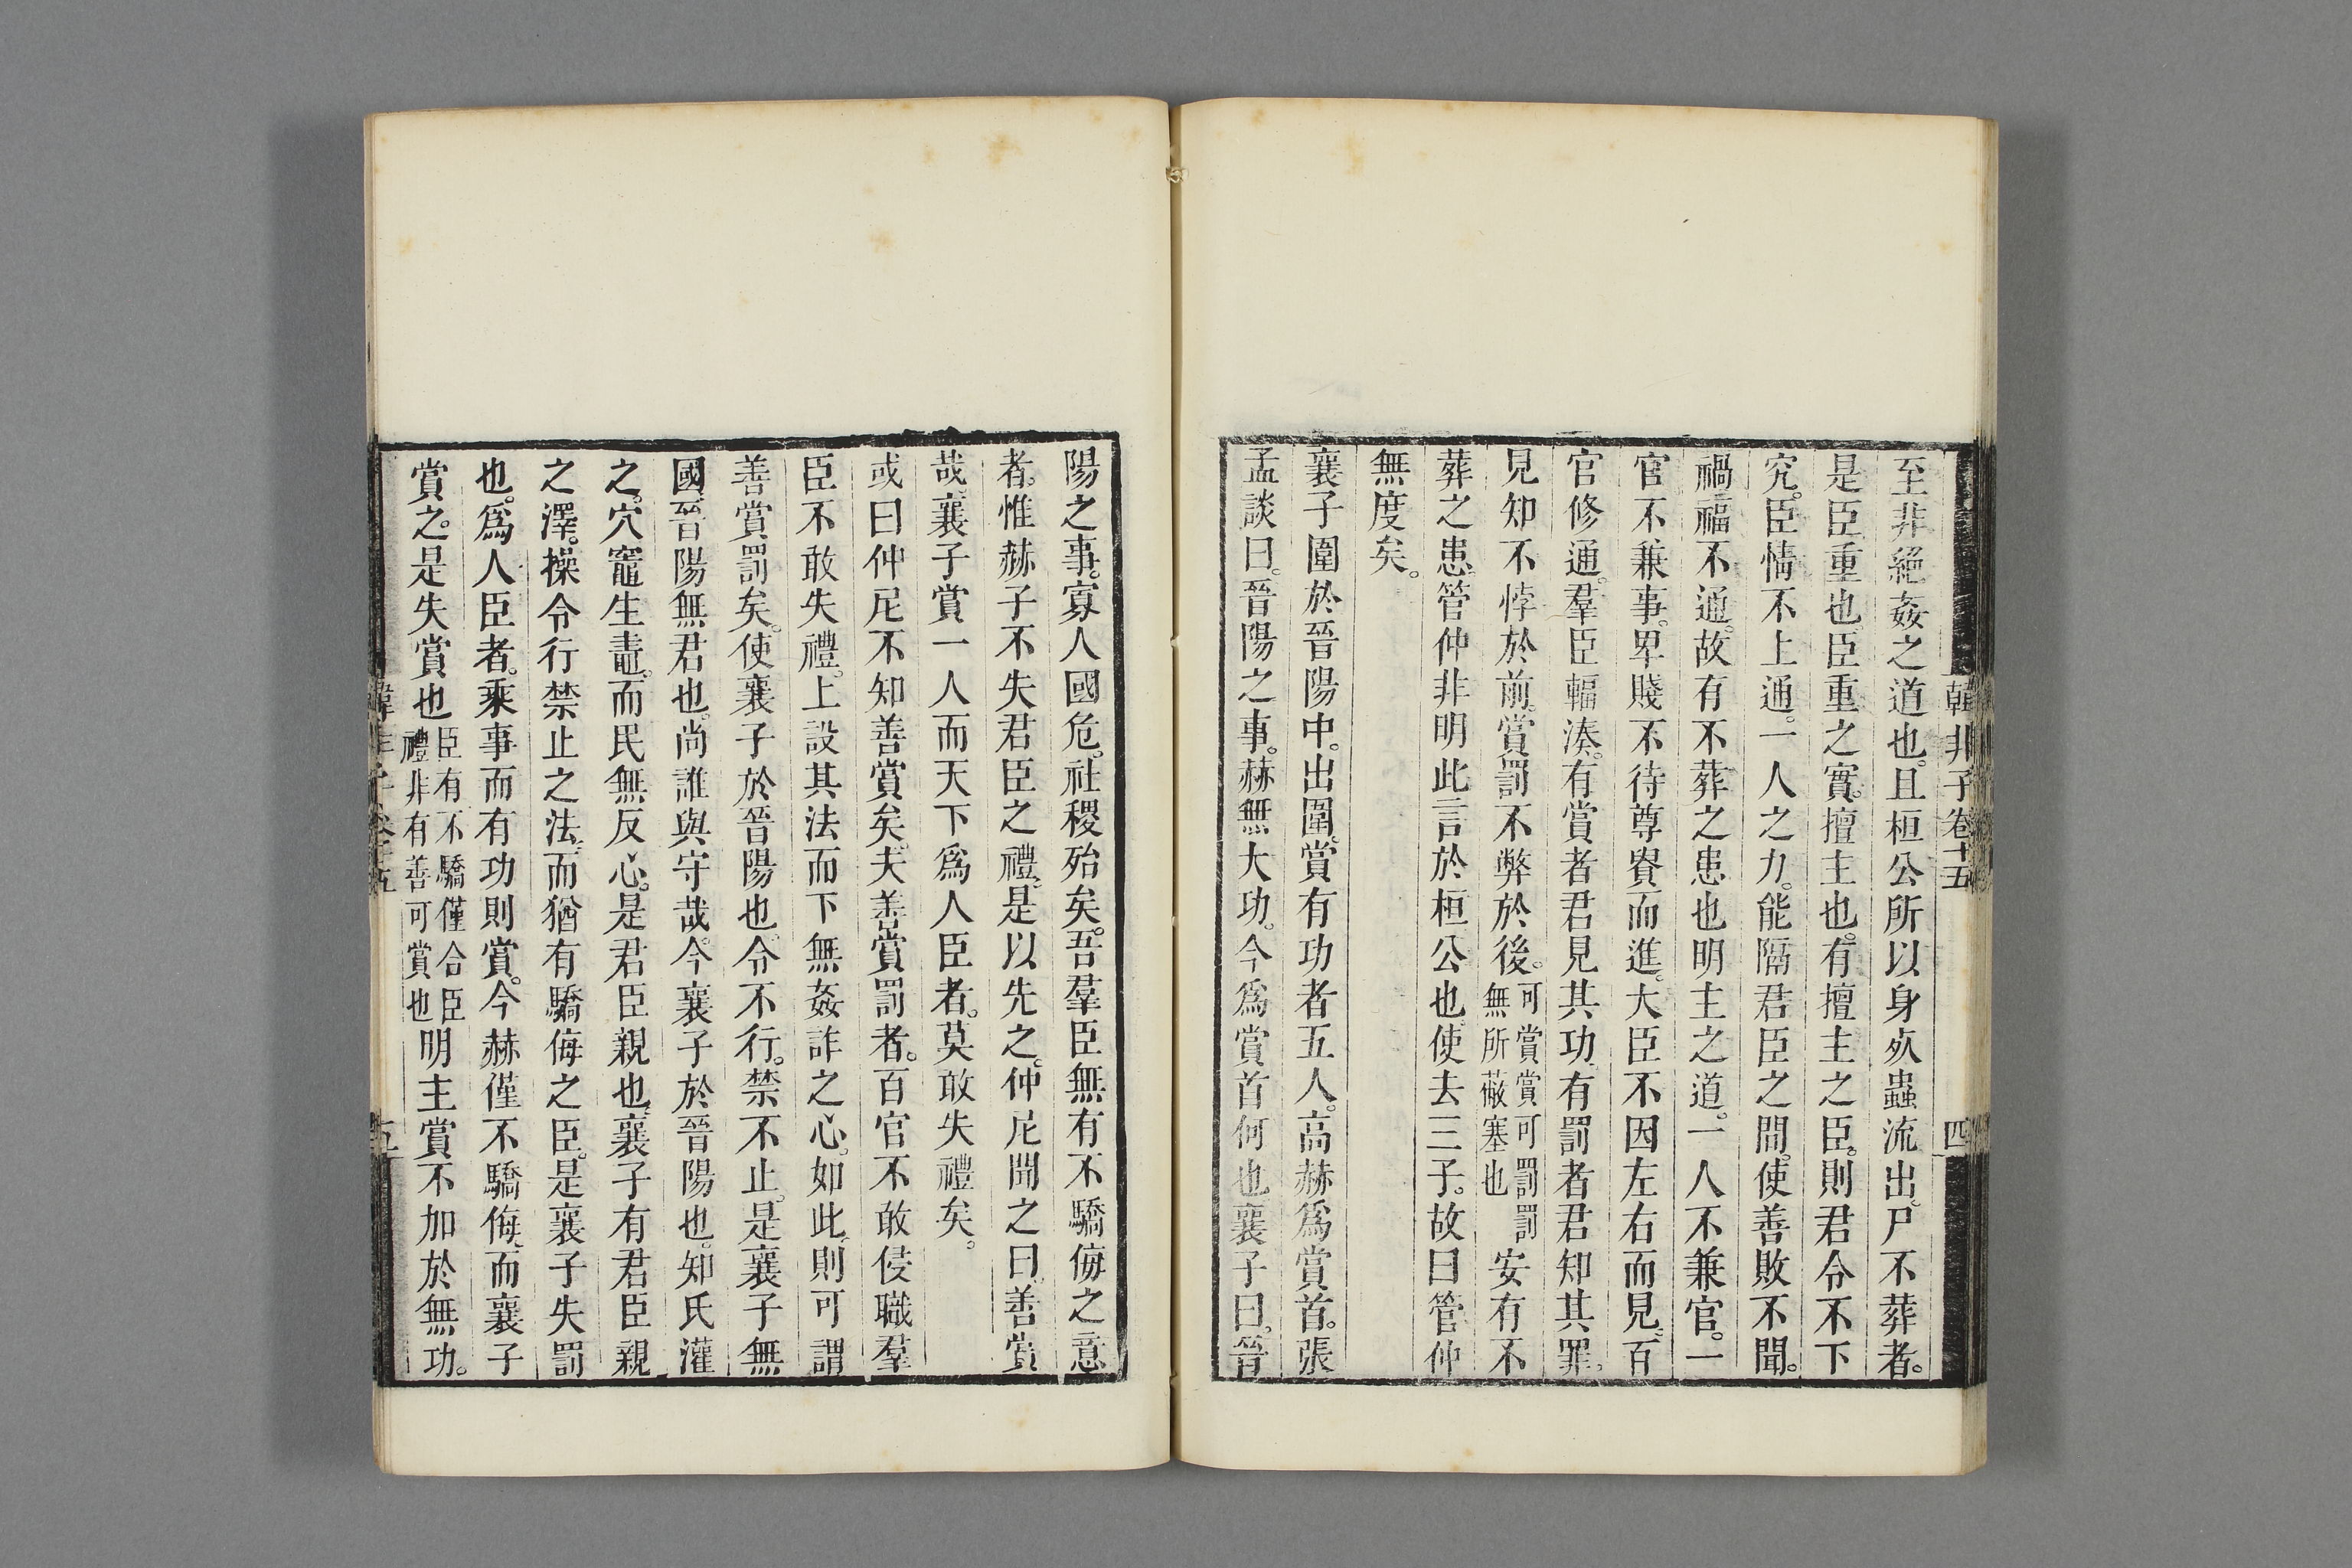 韓非子卷十五
四
至非絕姦之道也。且桓公所以身死蟲流出。尸不葬者。
是臣重也。臣重之實。擅主也。有擅主之臣。則君令不下
究。臣情不上通。一人之力。能隔君臣之間。使善敗不聞。
禍福不通。故有不葬之患也明主之道。一人不兼官。一
官不兼事。卑賤不待尊貴而進。大臣不因左右而見。百
官修通。羣臣輻湊。有賞者君見其功。有罰者君知其罪。
見知不悖於前。賞罰不弊於後。可賞賞可罰罰無所蔽塞也安有不
葬之患。管仲非明此言於桓公也。使去三子。故曰管仲
無度矣。
襄子圍於晉陽中。出圍。賞有功者五人。高赫爲賞首。張
孟談曰。晉陽之事。赫無大功。今爲賞首何也襄子曰。晉
陽之事。寡人國危。社稷殆矣。吾羣臣無有不驕侮之意
者。惟赫子不失君臣之禮。是以先之。仲尼聞之曰。善賞
哉。襄子賞一人而天下爲人臣者。莫敢失禮矣。
或曰仲尼不知善賞矣。夫善賞罰者。百官不敢侵職羣
臣不敢失禮。上設其法而下無姦詐之心。如此。則可謂
善賞罰矣。使襄子於晉陽也。令不行。禁不止。是襄子無
國。晉陽無君也。尚誰與守哉。今襄子於晉陽也。知氏灌
之。穴竈生鼃。而民無反心。是君臣親也。襄子有君臣親
之澤。操令行禁止之法。而猶有驕侮之臣。是襄子失罰
也。爲人臣者。乘事而有功則賞。今赫僅不驕侮。而襄子
賞之。是失賞也臣有不驕僅合臣禮非有善可賞也明主賞不加於無功。
韓非子卷十五
五